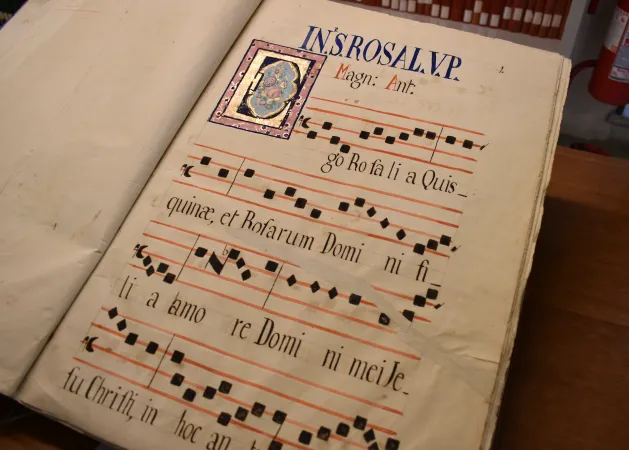 IN S. ROSAL. V. P.
1.
Magn: Ant:
E go Ro sa li a Quis_
quinæ, et Rosarum Domi ni fi_
li a amo re Domi ni mei Je_
su Christi, in hoc an